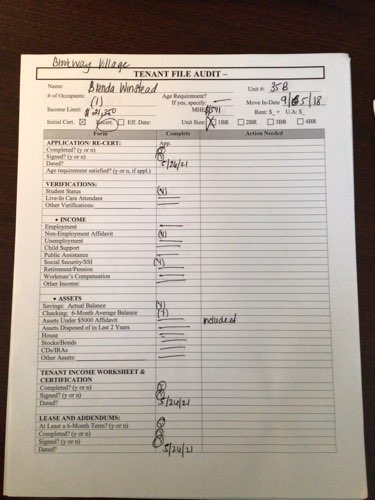 Brookway Village
TENANT FILE AUDIT –
Name: Brenda Winstead Unit #: 35B
# of Occupants: (1) Age Requirement? If yes, specify:
Move In-Date 9/5/18
Income Limit: $ 21,350 MHI: $591 Rent: $_ + U.A: $_
Initial Cert. ☒ Recert. ☐ Eff. Date: Unit Size: ☒ 1BR ☐ 2BR ☐ 3BR ☐ 4BR
Form Complete Action Needed
APPLICATION/RE-CERT: App.
Completed? (y or n)
Signed? (y or n)
Dated? 5/26/21
Age requirement satisfied? (y or n, if appl.)
VERIFICATIONS:
Student Status (Y)
Live-In Care Attendant
Other Verifications:
• INCOME
Employment
Non-Employment Affidavit (Y)
Unemployment
Child Support
Public Assistance
Social Security/SSI (Y)
Retirement/Pension
Workman's Compensation
Other Income:
• ASSETS
Savings: Actual Balance (Y)
Checking: 6-Month Average Balance (Y)
Assets Under $5000 Affidavit Included
Assets Disposed of in Last 2 Years
House
Stocks/Bonds
CDs/IRAs
Other Assets:
TENANT INCOME WORKSHEET &
CERTIFICATION
Completed? (y or n)
Signed? (y or n)
Dated? 5/26/21
LEASE AND ADDENDUMS:
At Least a 6-Month Term? (y or n)
Completed? (y or n)
Signed? (y or n)
Dated? 5/26/21